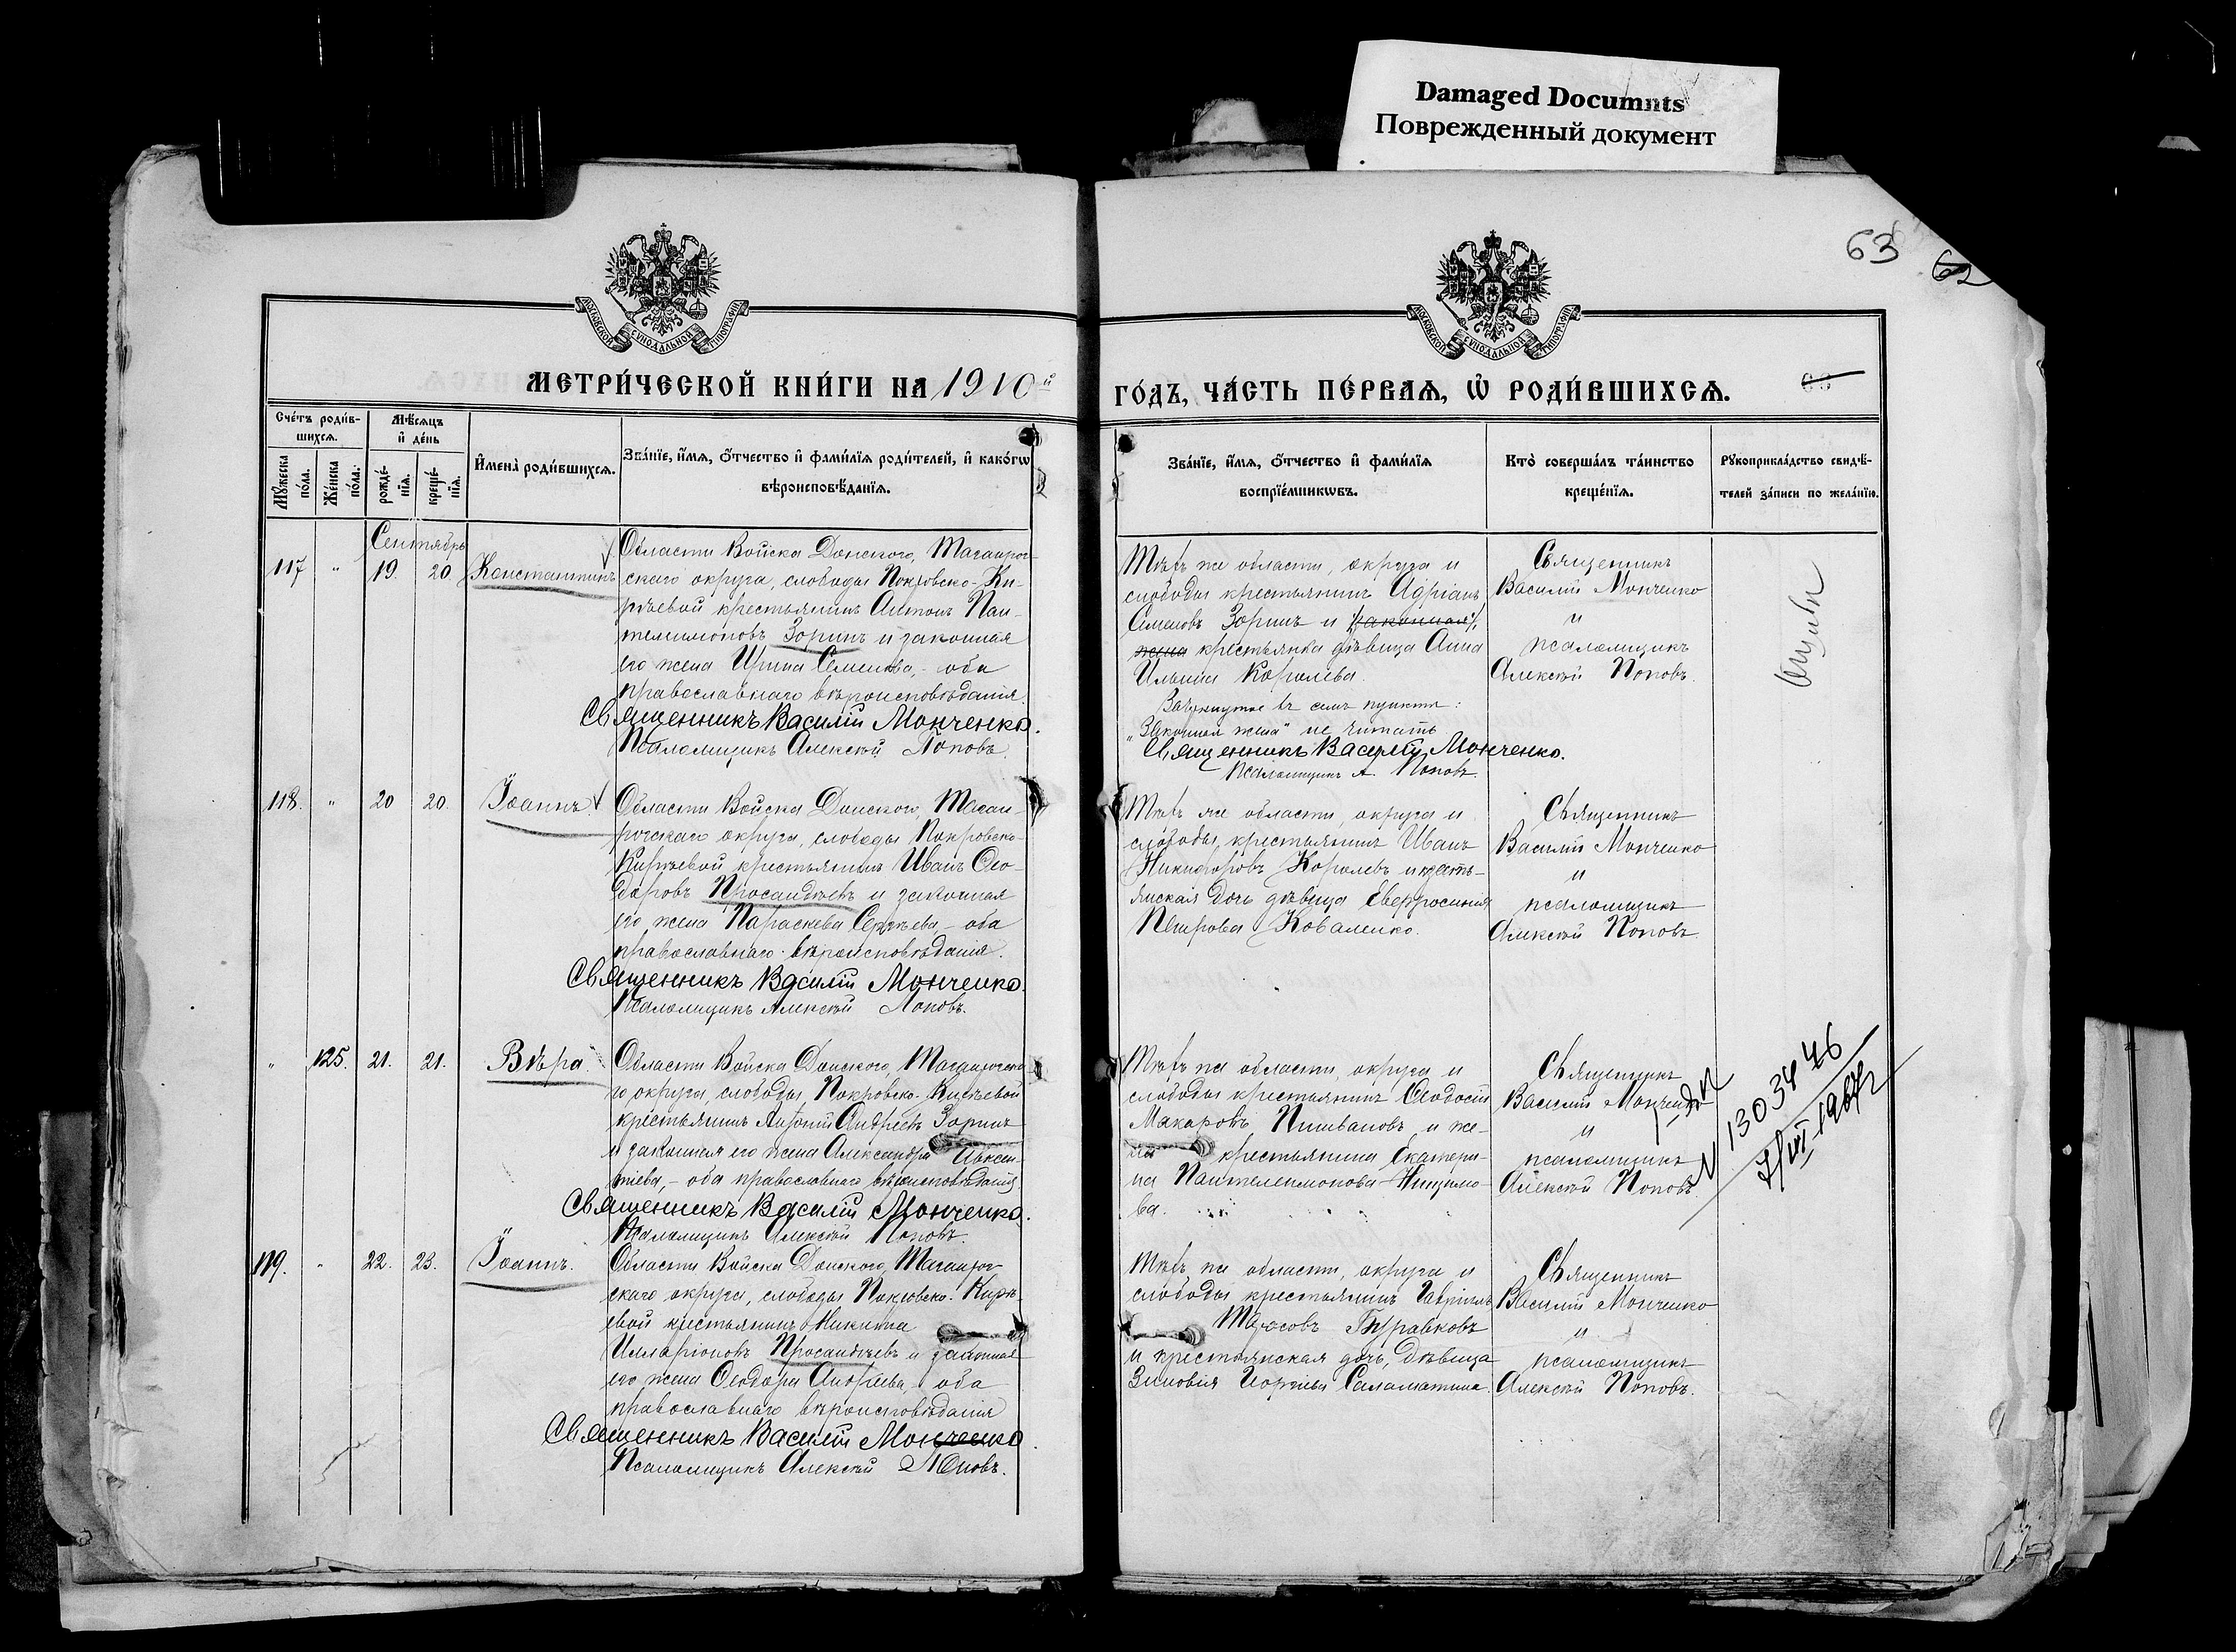 Damaged Documnts
Поврежденный документ
63
62
МОСКОВСКОЙ СѴНОДАЛЬНОЙ ТИПОГРАФІИ
МОСКОВСКОЙ СѴНОДАЛЬНОЙ ТИПОГРАФІИ
МЕТРИ́ЧЕСКОЙ КНИ́ГИ НА 1910й
ГО́ДЪ, ЧА́СТЬ ПЕ́РВАѦ, Ѡ҆ РОДИ́ВШИХСѦ.
Сче́тъ роди́в-
шихсѧ.
Мꙋ́жеска по́ла.
Же́нска по́ла.
Мѣ́сѧцъ
и҆ де́нь
рожде́-
нїѧ.
креще́-
нїѧ.
И҆мена̀ роди́вшихсѧ.
Зва́нїе, и҆́мѧ, ѻ҆́тчество и҆ фами́лїѧ роди́телей, и҆ како́гѡ
вѣроисповѣ́данїѧ.
Зва́нїе, и҆́мѧ, ѻ҆́тчество и҆ фами́лїѧ
воспрїе́мникѡвъ.
Кто̀ соверша́лъ та́инство
креще́нїѧ.
Рꙋкоприкла́дство свидѣ́-
телей за́писи по жела́нїю.
Сентябрь
117 " 19. 20. Константинъ
Области Войска Донского, Таганрог-
скаго округа, слободы Покровско-Ки-
рѣевой крестьянинъ Антонъ Пан-
телимоновъ Зоринъ и законная
его жена Ирина Семенова, - оба
православнаго вѣроисповѣданія.
Священникъ Василій Монченко.
Псаломщикъ Алексѣй Поповъ.
Тѣхъ же области, округа и
слободы крестьянинъ Адріанъ
Семеновъ Зоринъ и законная
жена крестьянка дѣвица Анна
Ильина Королева.
Зачеркнутое въ семъ пунктѣ:
„Законная жена" не читать
Священникъ Василій Монченко.
Псаломщикъ А. Поповъ.
Священникъ
Василій Монченко
и
псаломщикъ
Алексѣй Поповъ.
118. " 20 20. Іоаннъ
Области Войска Донского, Таган-
рогскаго округа, слободы Покровско-
Кирѣевой крестьянинъ Иванъ Ѳео-
доровъ Просандѣевъ и законная
его жена Параскева Сергѣева, - оба
православнаго вѣроисповѣданія.
Священникъ Василій Монченко.
Псаломщикъ Алексѣй Поповъ.
Тѣхъ же области, округа и
слободы, крестьянинъ Иванъ
Никифоровъ Королевъ и кресть-
янская дочь дѣвица Евфросинія
Петрова Коваленко.
Священникъ
Василій Монченко
и
псаломщикъ
Алексѣй Поповъ.
" 125. 21. 21. Вѣра
Области Войска Донского, Таганрогска-
го округа, слободы Покровско-Кирѣевой
крестьянинъ Антоній Андреевъ Зоринъ
и законная его жена Александра Авксен-
тіева, - оба православнаго вѣроисповѣданія.
Священникъ Василій Монченко.
Псаломщикъ Алексѣй Поповъ.
Тѣхъ же области, округа и
слободы крестьянинъ Ѳеодосій
Макаровъ и же-
на крестьянина Екатери-
на Пантелеимонова
ва.
Священникъ
Василій Монченко
и
псаломщикъ
Алексѣй Поповъ.
N 1303446
7/VII-1967г
119. " 22. 23. Іоаннъ.
Области Войска Донского, Таганрог-
скаго округа, слободы Покровско-Кирѣ-
евой крестьянинъ Никита
Илларіоновъ Просандѣевъ и законная
его жена Ѳеодора Андреева, оба
православнаго вѣроисповѣданія
Священникъ Василій Монченко.
Псаломщикъ Алексѣй Поповъ.
Тѣхъ же области, округа и
слободы крестьянинъ Гавріилъ
Тарасовъ Журавковъ
и крестьянская дочь, дѣвица
Зиновія Саламатина.
Священникъ
Василій Монченко
и
псаломщикъ
Алексѣй Поповъ.